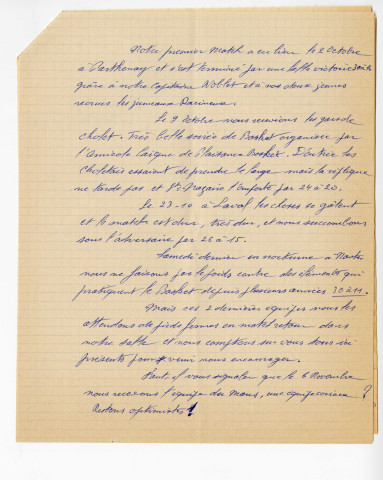 Notre premier match a eu lieu le 2 Octobre
à Parthenay et s'est terminé par une belle victoire
grâce à notre Capitaine Noblet et à nos deux jeunes
recrues les jumeaux Racineux.
Le 9 Octobre nous recevions les gars de
Cholet. Très belle soirée de Basket organisée par
l'Amicale Laïque de Plaisance Basket. D'entrée les
Choletais essaient de prendre le large mais la réplique
ne tarde pas et St Nazaire l'emporte par 24 à 20.
Le 23-10 à Laval les choses se gâtent
et le match est dur, très dur, et nous succombons
sous l'adversaire par 26 à 15.
Samedi dernier en nocturne à Nantes
nous ne faisons pas le poids contre des éléments qui
pratiquent le Basket depuis plusieurs années 30 à 11.
Mais ces 2 dernières équipes nous les
attendons de pieds fermes en match retour dans
notre salle et nous comptons sur vous tous ici
présents pour venir nous encourager.
Faut-il vous signaler que le 6 Novembre
nous recevons l'équipe du Mans, une équipe ?
Restons optimistes !